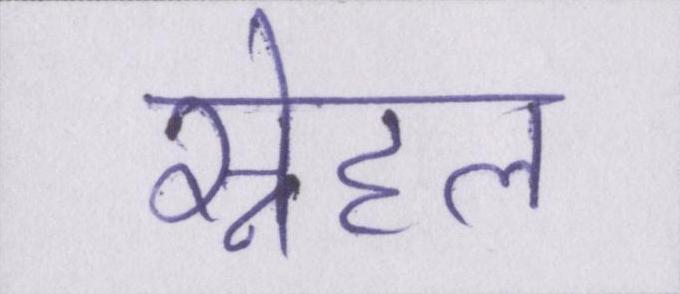 स्नेहल